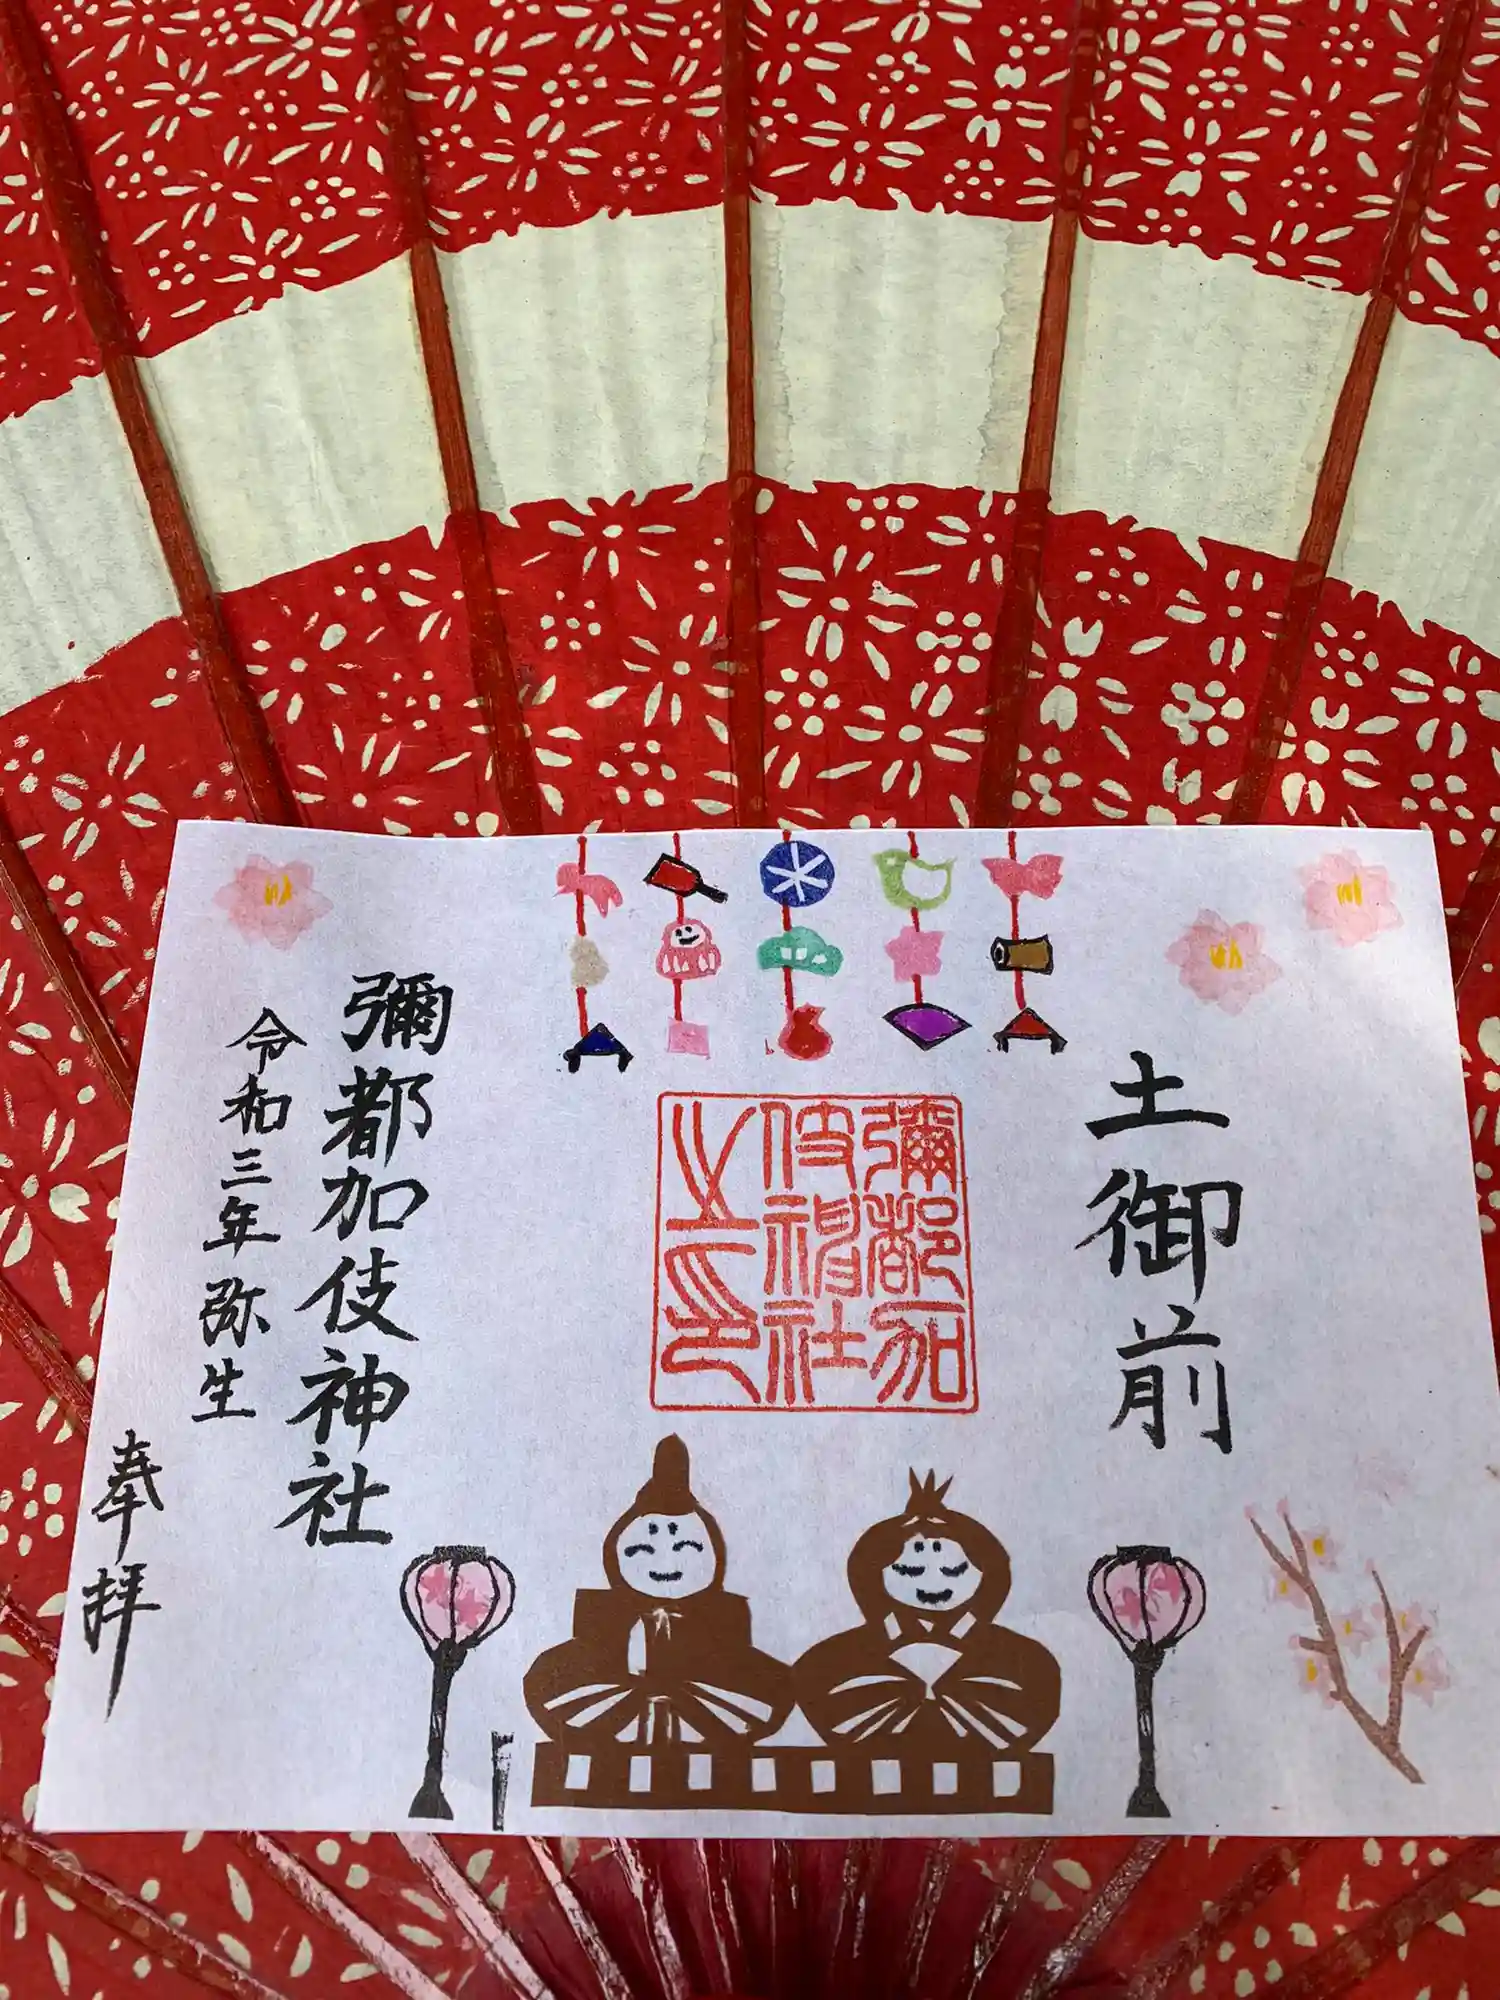 土御前
彌都加
伎神社
之印
彌都加伎神社
令和三年弥生
奉拝